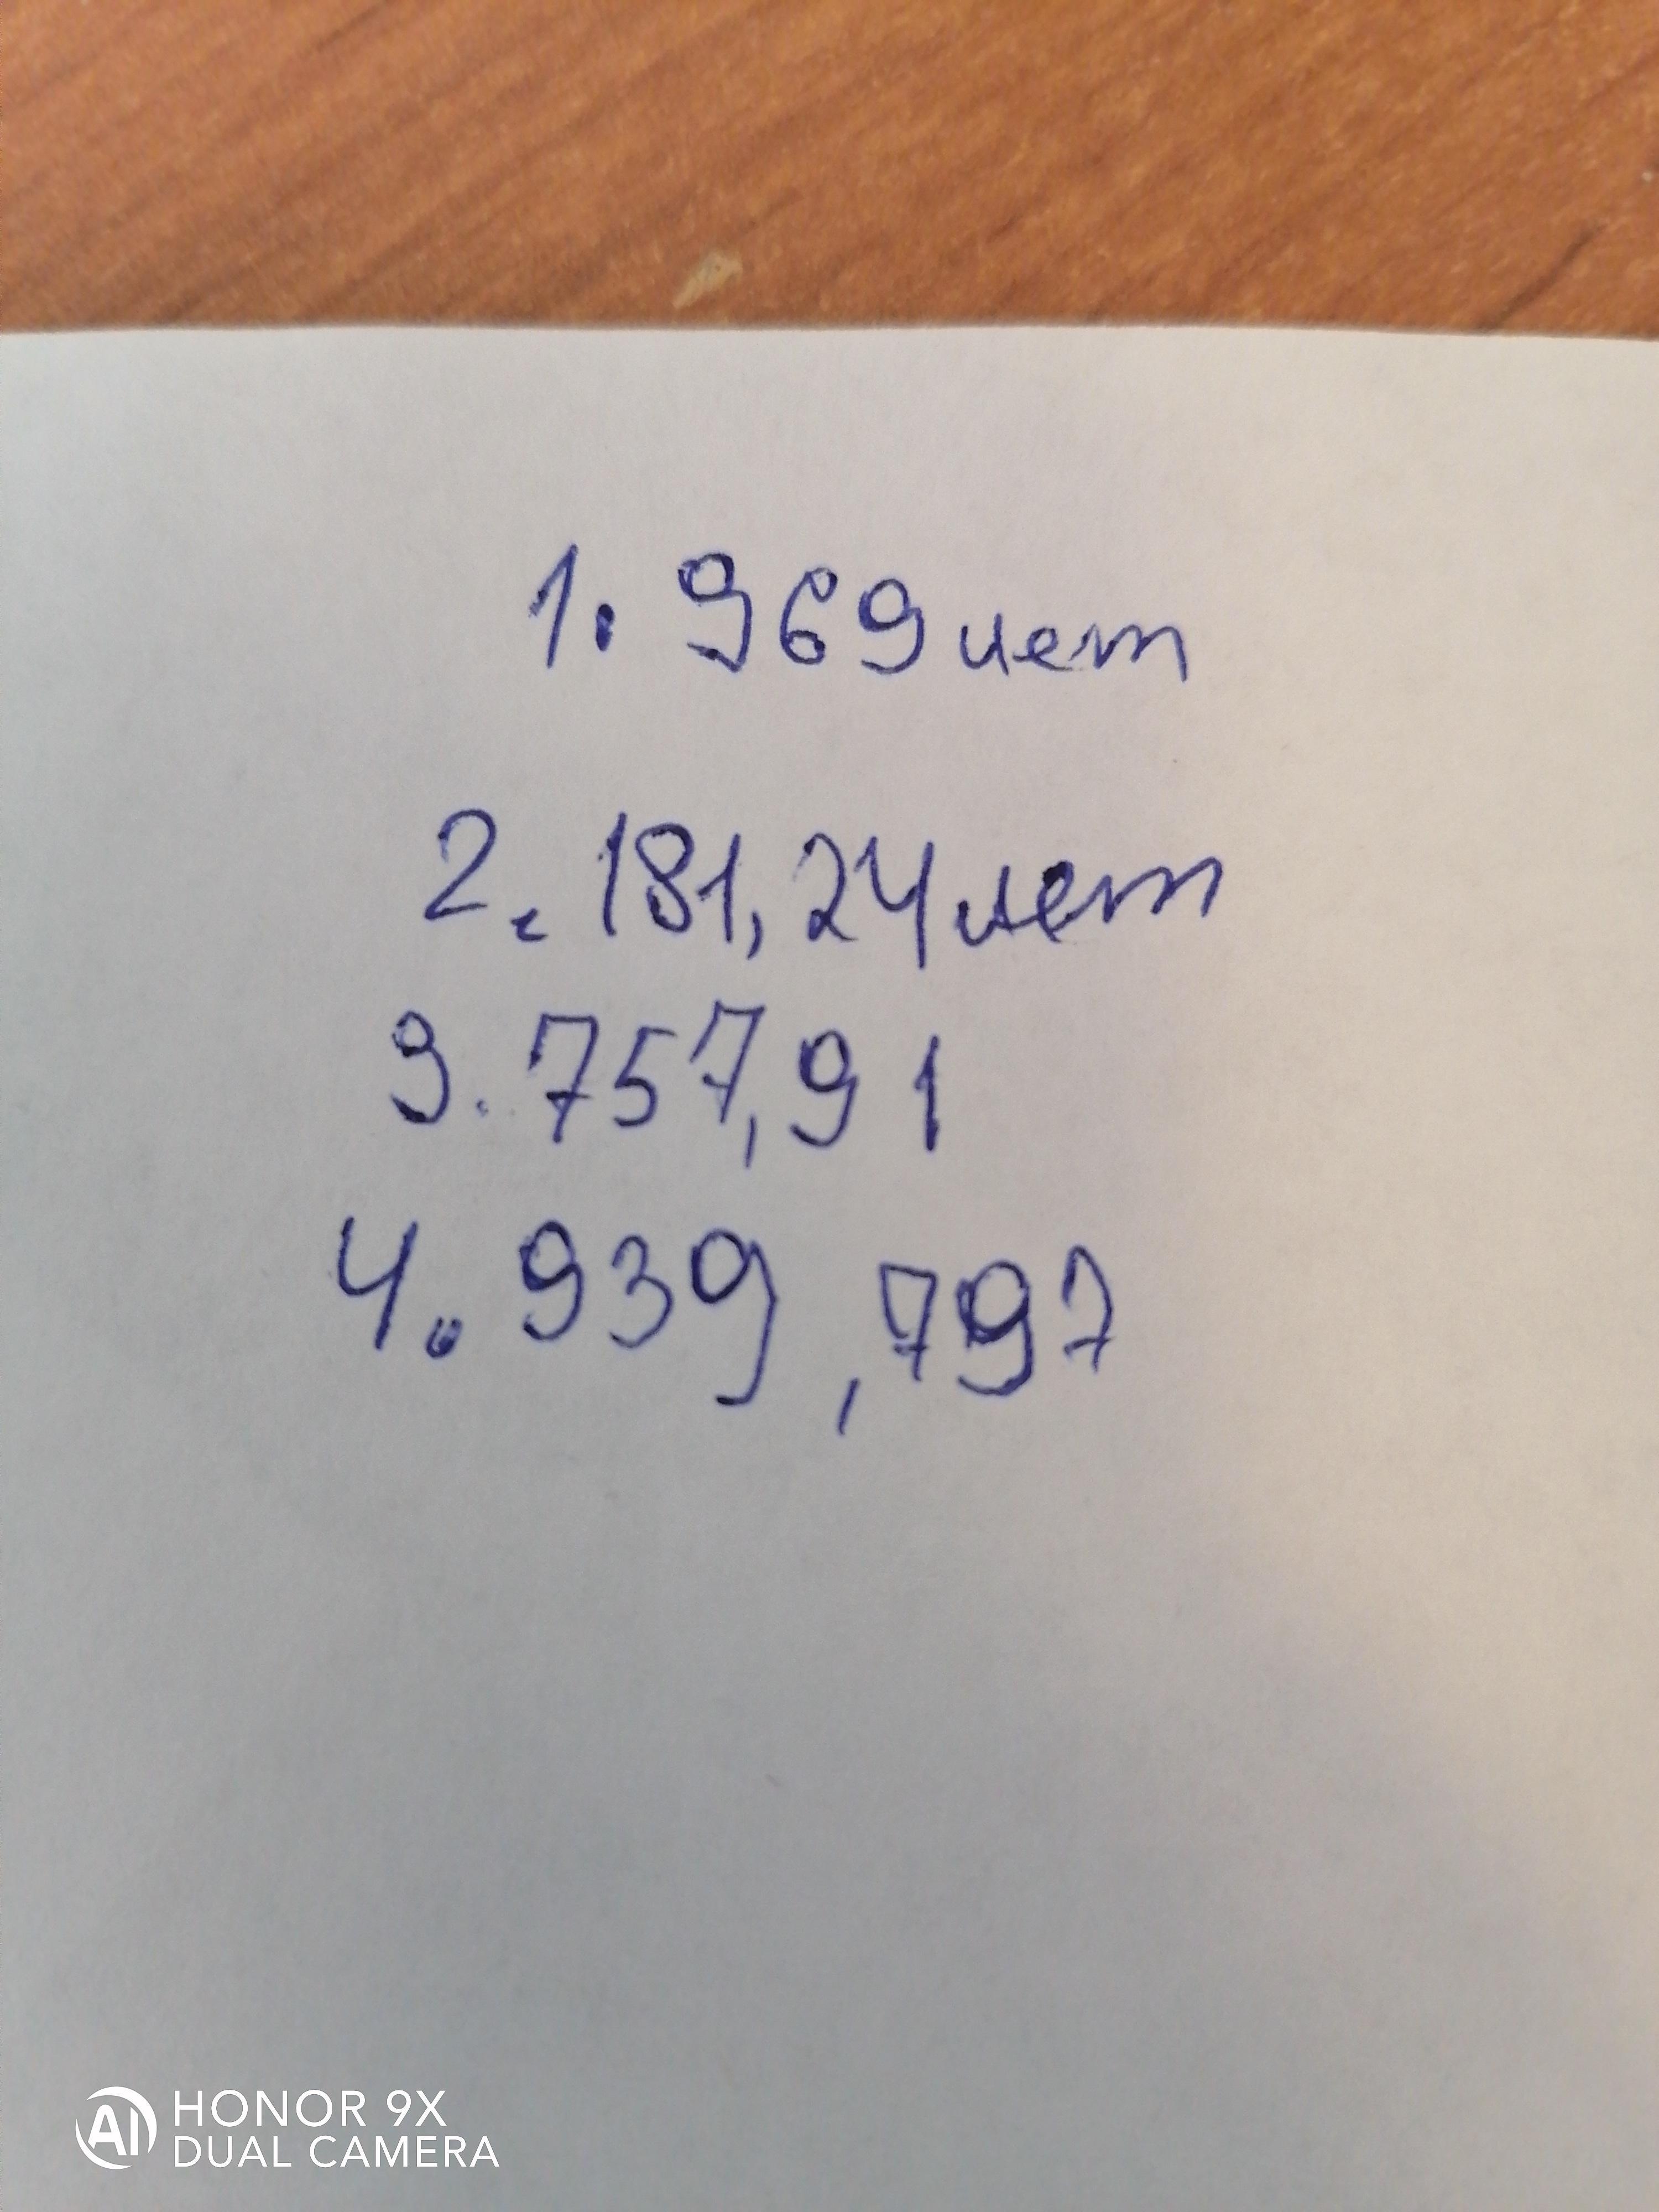 1. 969 лет
2. 181,24 лет
3. 757,91
4. 939,797
HONOR 9X
DUAL CAMERA